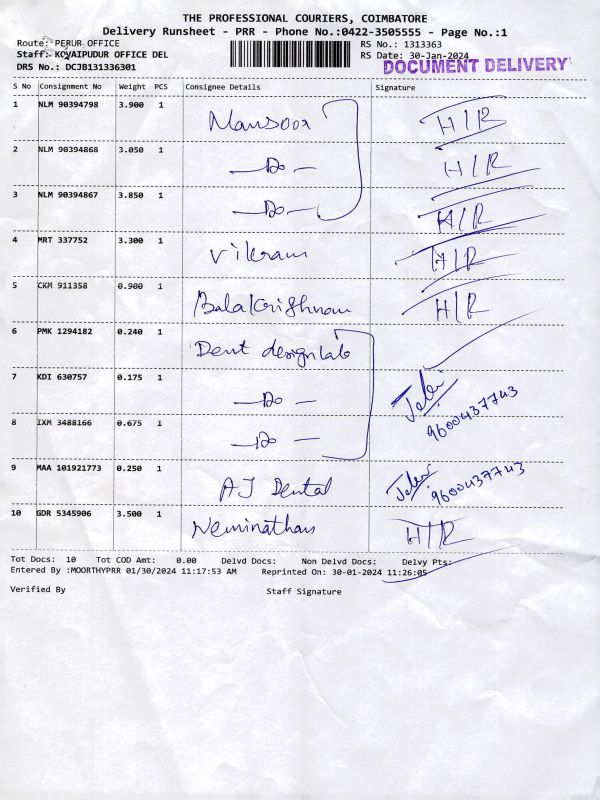 THE PROFESSIONAL COURIERS, COIMBATORE
Delivery Runsheet - PRR - Phone No.:0422-3505555 - Page No.:1
Route:- PERUR OFFICE
Staff:- KOVAIPUDUR OFFICE DEL
DRS No.: DCJB131336301
RS No.: 1313363
RS Date: 30-Jan-2024
DOCUMENT DELIVERY
S No Consignment No Weight PCS Consignee Details Signature
1 NLM 90394798 3.900 1 Mansoor H/R
2 NLM 90394868 3.050 1 —Do— H/R
3 NLM 90394867 3.850 1 —Do— H/R
4 MRT 337752 3.300 1 Vikram H/R
5 CKM 911358 0.900 1 Balakrishnan H/R
6 PMK 1294182 0.240 1 Dent design lab
7 KDI 630757 0.175 1 —Do—
9600437743
8 IXM 3488166 0.675 1 —Do—
9 MAA 101921773 0.250 1 AJ Dental 9600437743
10 GDR 5345906 3.500 1 Neminathan H/R
Tot Docs: 10 Tot COD Amt: 0.00 Delvd Docs: Non Delvd Docs: Delvy Pts:
Entered By :MOORTHYPRR 01/30/2024 11:17:53 AM Reprinted On: 30-01-2024 11:26:05
Verified By Staff Signature